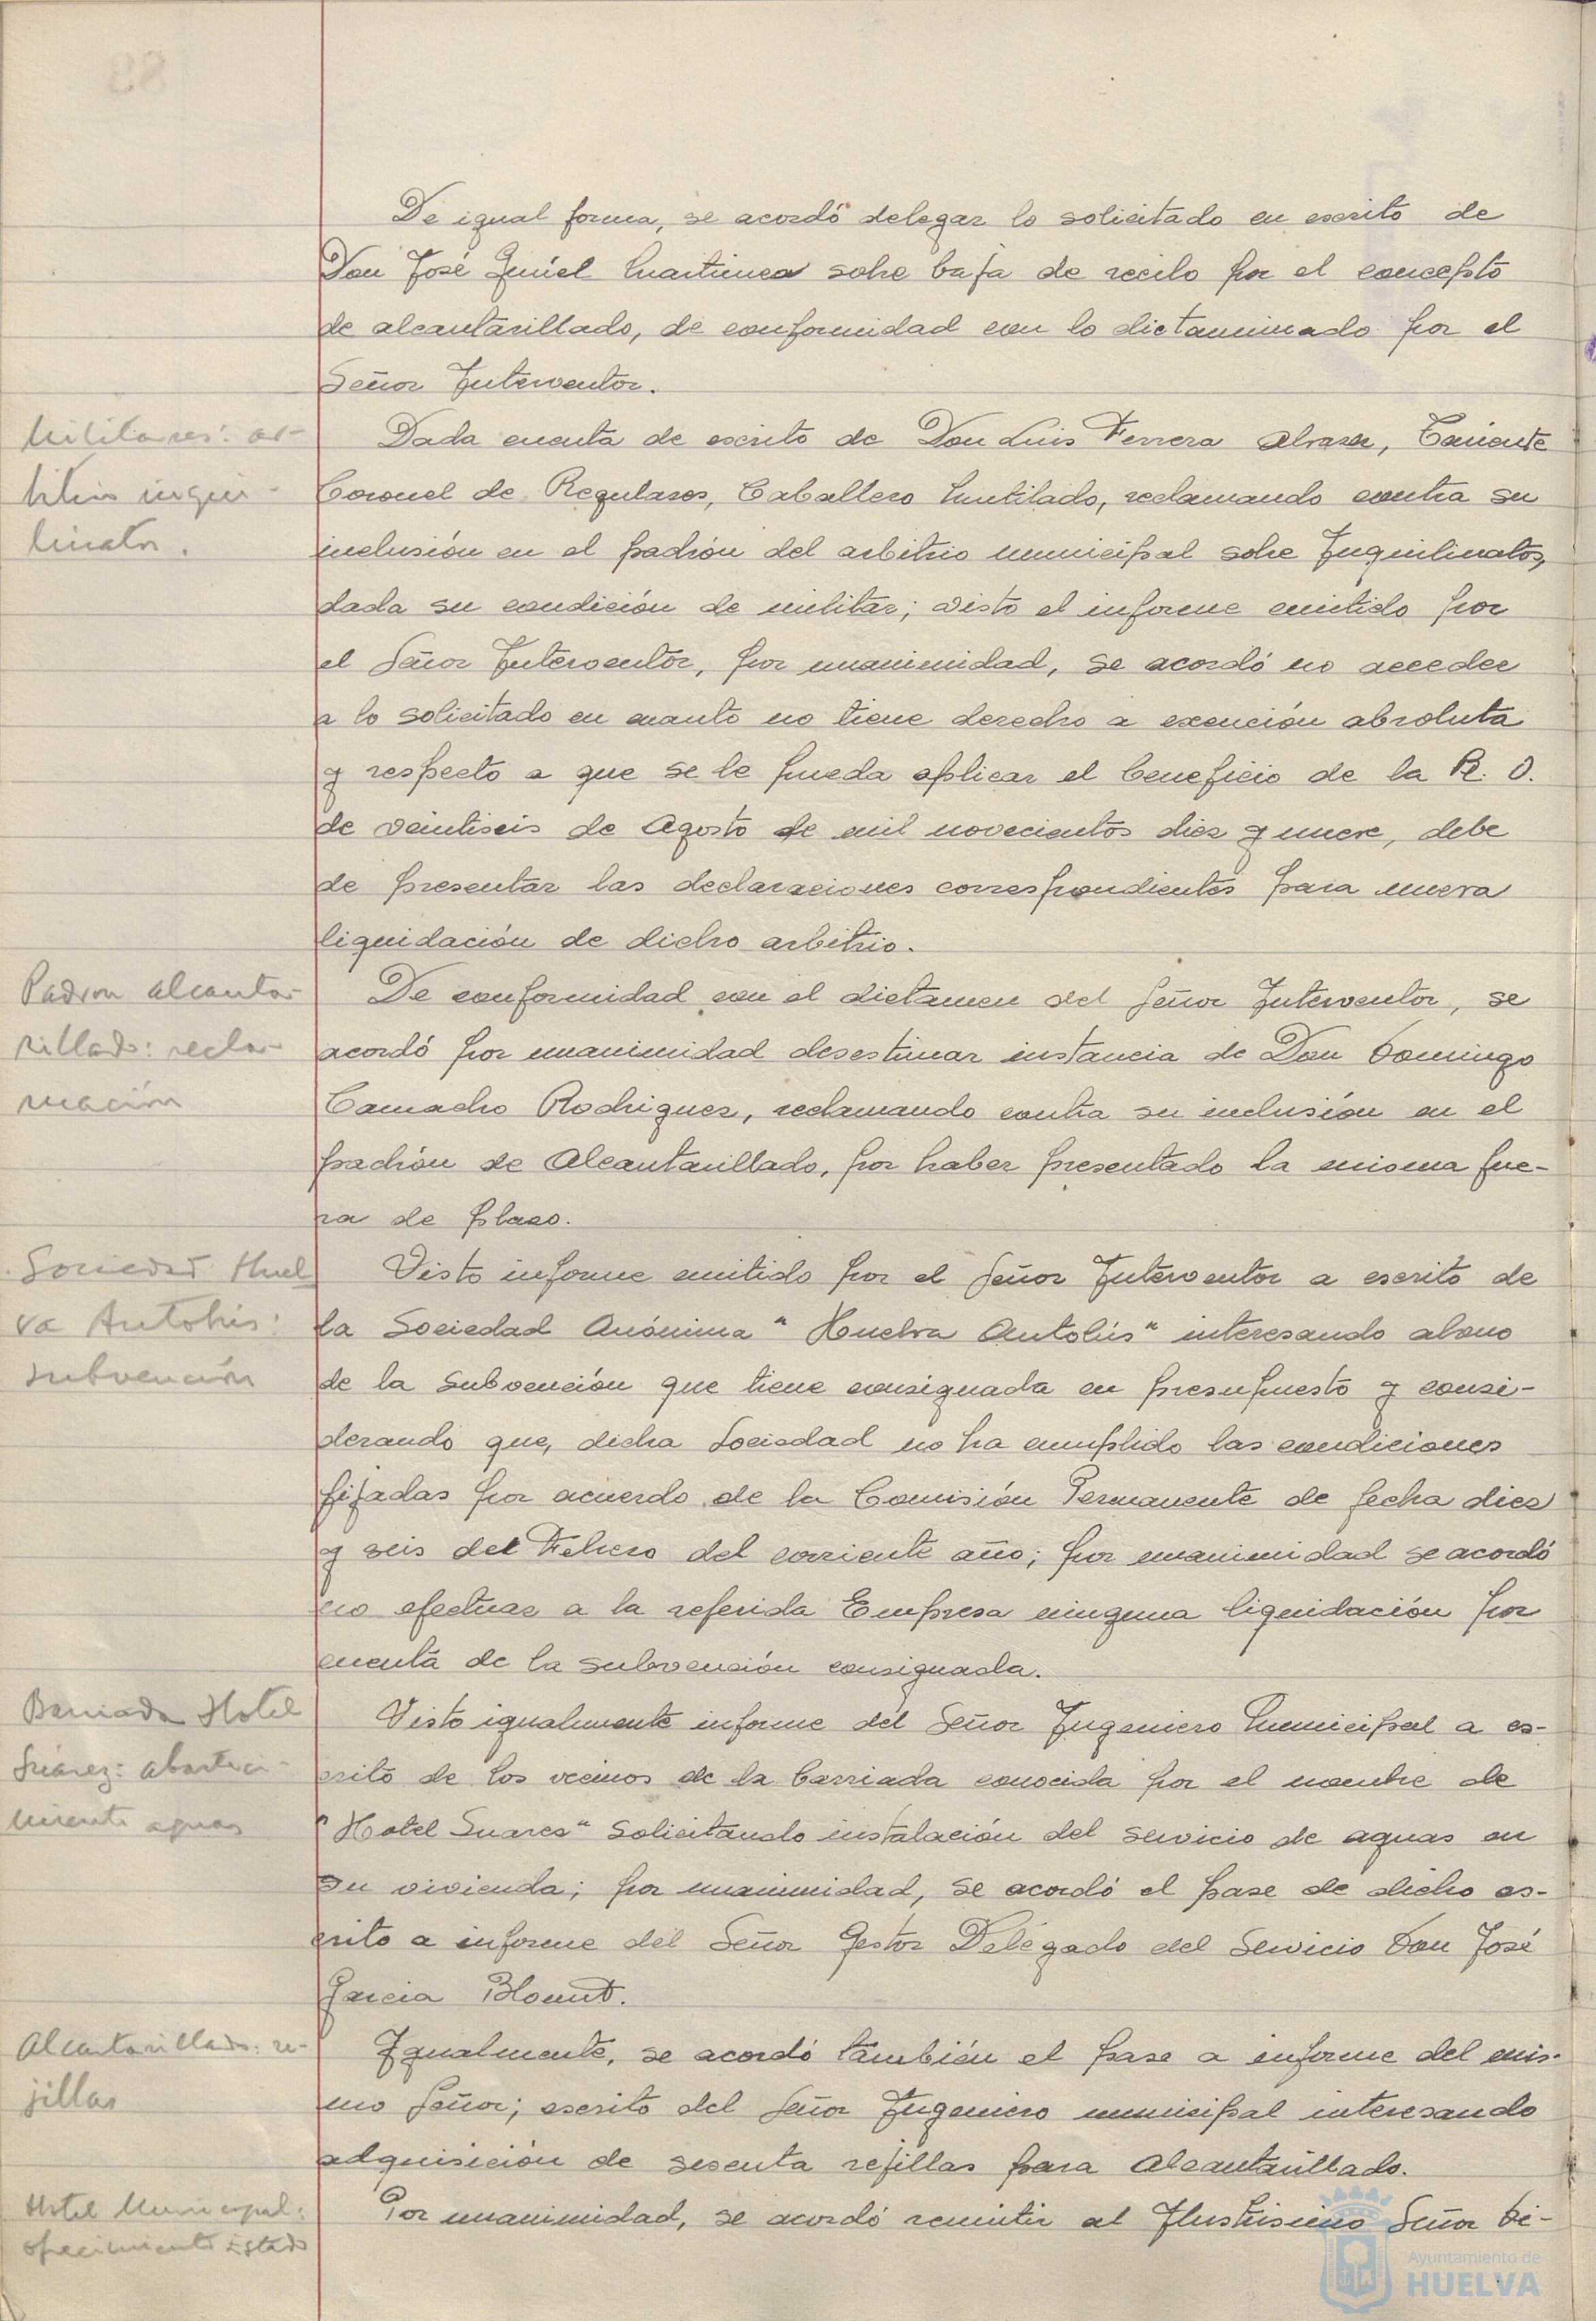 De igual forma, se acordó delegar lo solicitado en escrito de
Don José Martinez sobre baja de recibo por el concepto
de alcantarillado, de conformidad con lo dictaminado por el
Señor Interventor.
Militares: ar-
bitrio inqui-
linatos.
Dada cuenta de escrito de Don Luis Ferrera, Teniente
Coronel de Regulares, Caballero Mutilado, reclamando contra su
inclusión en el padrón del arbitrio municipal sobre Inquilinatos,
dada su condición de militar; visto el informe emitido por
el Señor Interventor, por unanimidad, se acordó no acceder
a lo solicitado en cuanto no tiene derecho a exención absoluta
y respecto a que se le pueda aplicar el beneficio de la R. O.
de veintiseis de Agosto de mil novecientos diez y nueve, debe
de presentar las declaraciones correspondientes para nueva
liquidación de dicho arbitrio.
Padron alcanta-
rillado: recla-
mación
De conformidad con el dictamen del Señor Interventor, se
acordó por unanimidad desestimar instancia de Don Domingo
Camacho Rodriguez, reclamando contra su inclusión en el
padrón de Alcantarillado, por haber presentado la misma fue-
ra de plazo.
Sociedad Huel
va Autobús:
subvención
Visto informe emitido por el Señor Interventor a escrito de
la Sociedad Anónima "Huelva Autobús" interesando abono
de la subvención que tiene consignada en presupuesto y consi-
derando que, dicha Sociedad no ha cumplido las condiciones
fijadas por acuerdo de la Comisión Permanente de fecha diez
y seis del Febrero del corriente año; por unanimidad se acordó
no efectuar a la referida Empresa ninguna liquidación por
cuenta de la subvención consignada.
Barriada Hotel
Suárez: abasteci-
miento aguas
Visto igualmente informe del Señor Ingeniero Municipal a es-
crito de los vecinos de la barriada conocida por el nombre de
"Hotel Suarez" solicitando instalación del servicio de aguas en
su vivienda; por unanimidad, se acordó el pase de dicho es-
crito a informe del Señor Gestor Delegado del Servicio Don José
Garcia
Alcantarillado: re-
jillas
Igualmente, se acordó también el pase a informe del mis-
mo Señor; escrito del Señor Ingeniero municipal interesando
adquisición de sesenta rejillas para Alcantarillado.
Hotel Municipal:
ofrecimiento Estado
Por unanimidad, se acordó remitir al Ilustrisimo Señor Di-
Ayuntamiento de
HUELVA